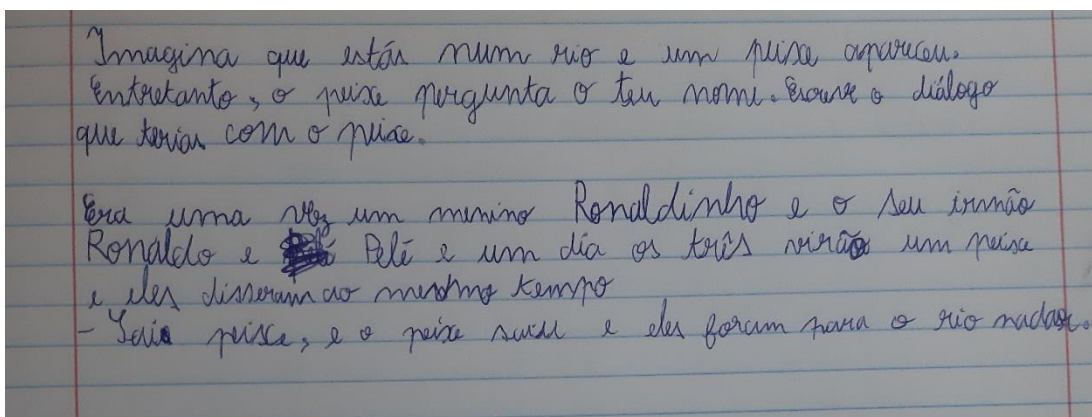 Imagina que estás num rio e um peixe apareceu.
Entretanto, o peixe pergunta o teu nome. Escreve o diálogo
que terias com o peixe.
Era uma vez um menino Ronaldinho e o seu irmão
Ronaldo e Pelé e um dia os três virão um peixe
e eles disseram ao mesmo tempo
- Sai peixe, e o peixe saiu e eles foram para o rio nadar.